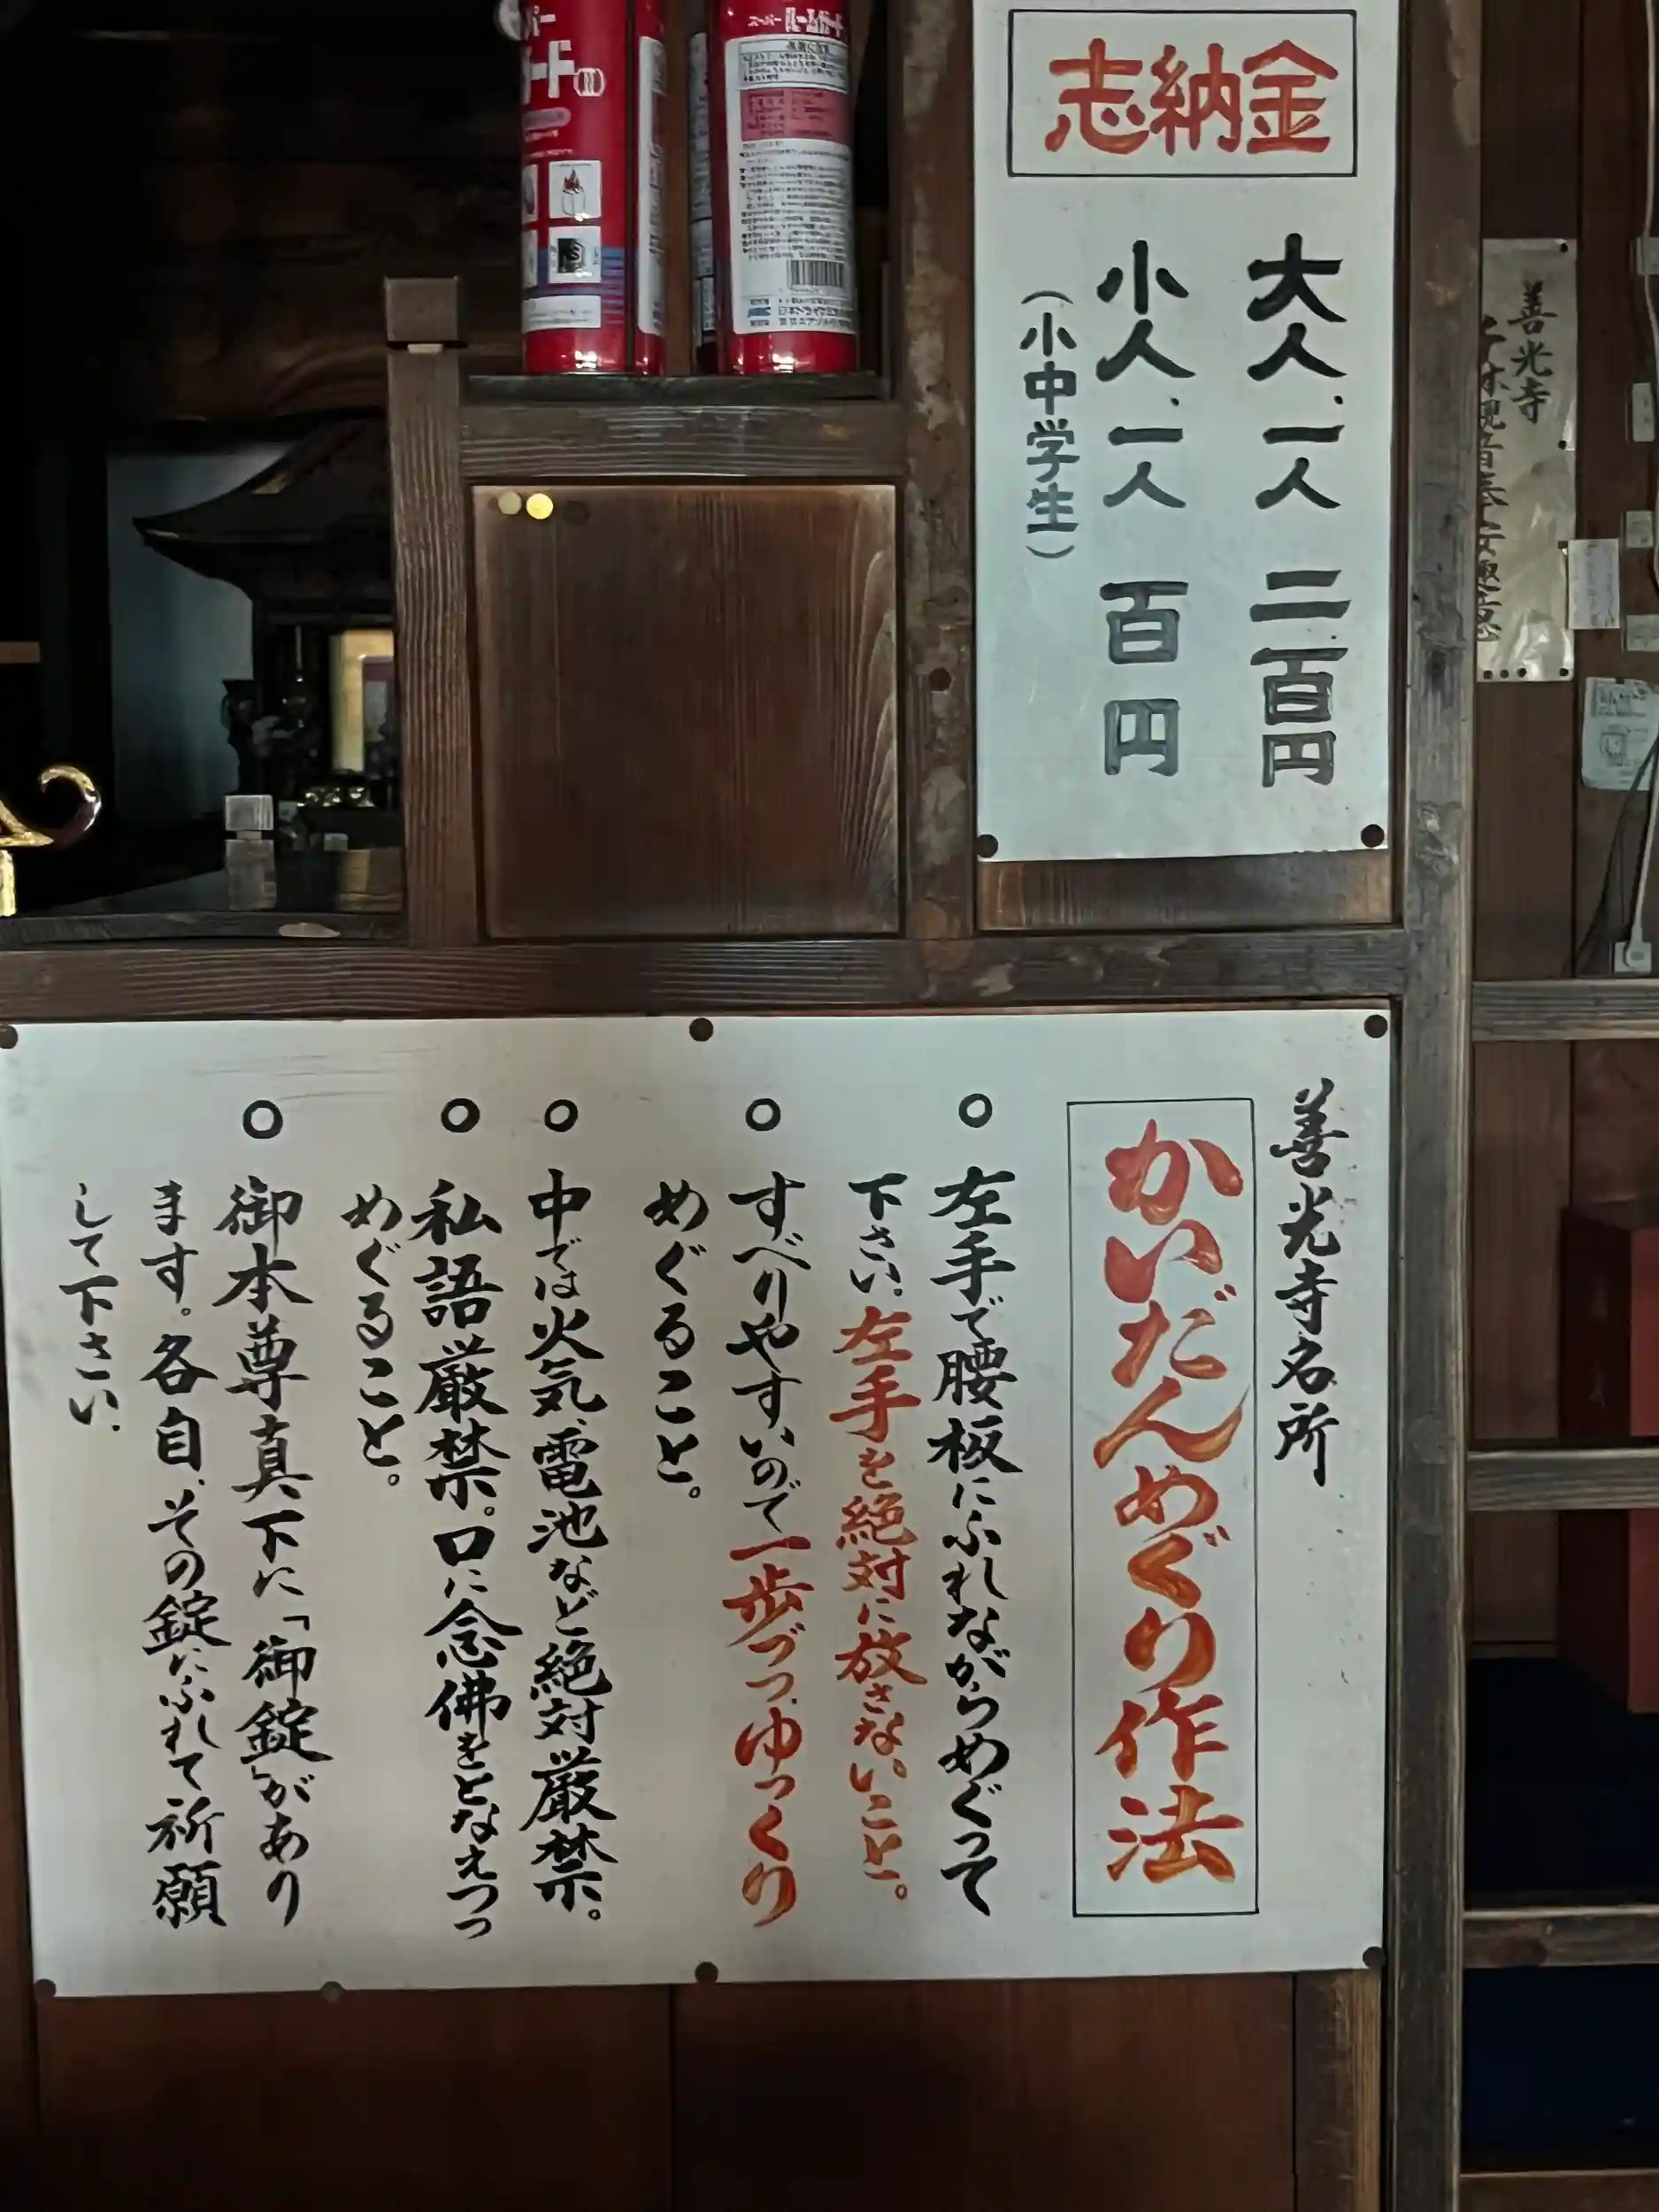 志納金
大人、一人 二百円
小人、一人 百円
(小中学生)
善光寺
善光寺名所
かいだんめぐり作法
○ 左手で腰板にふれながらめぐって
下さい。左手を絶対に放さないこと。
○ すべりやすいので一歩づつ、ゆっくり
めぐること。
○ 中では火気、電池など絶対厳禁。
○ 私語厳禁。口に念佛をとなえつつ
めぐること。
○ 御本尊真下に「御錠」があり
ます。各自、その錠にふれて祈願
して下さい。